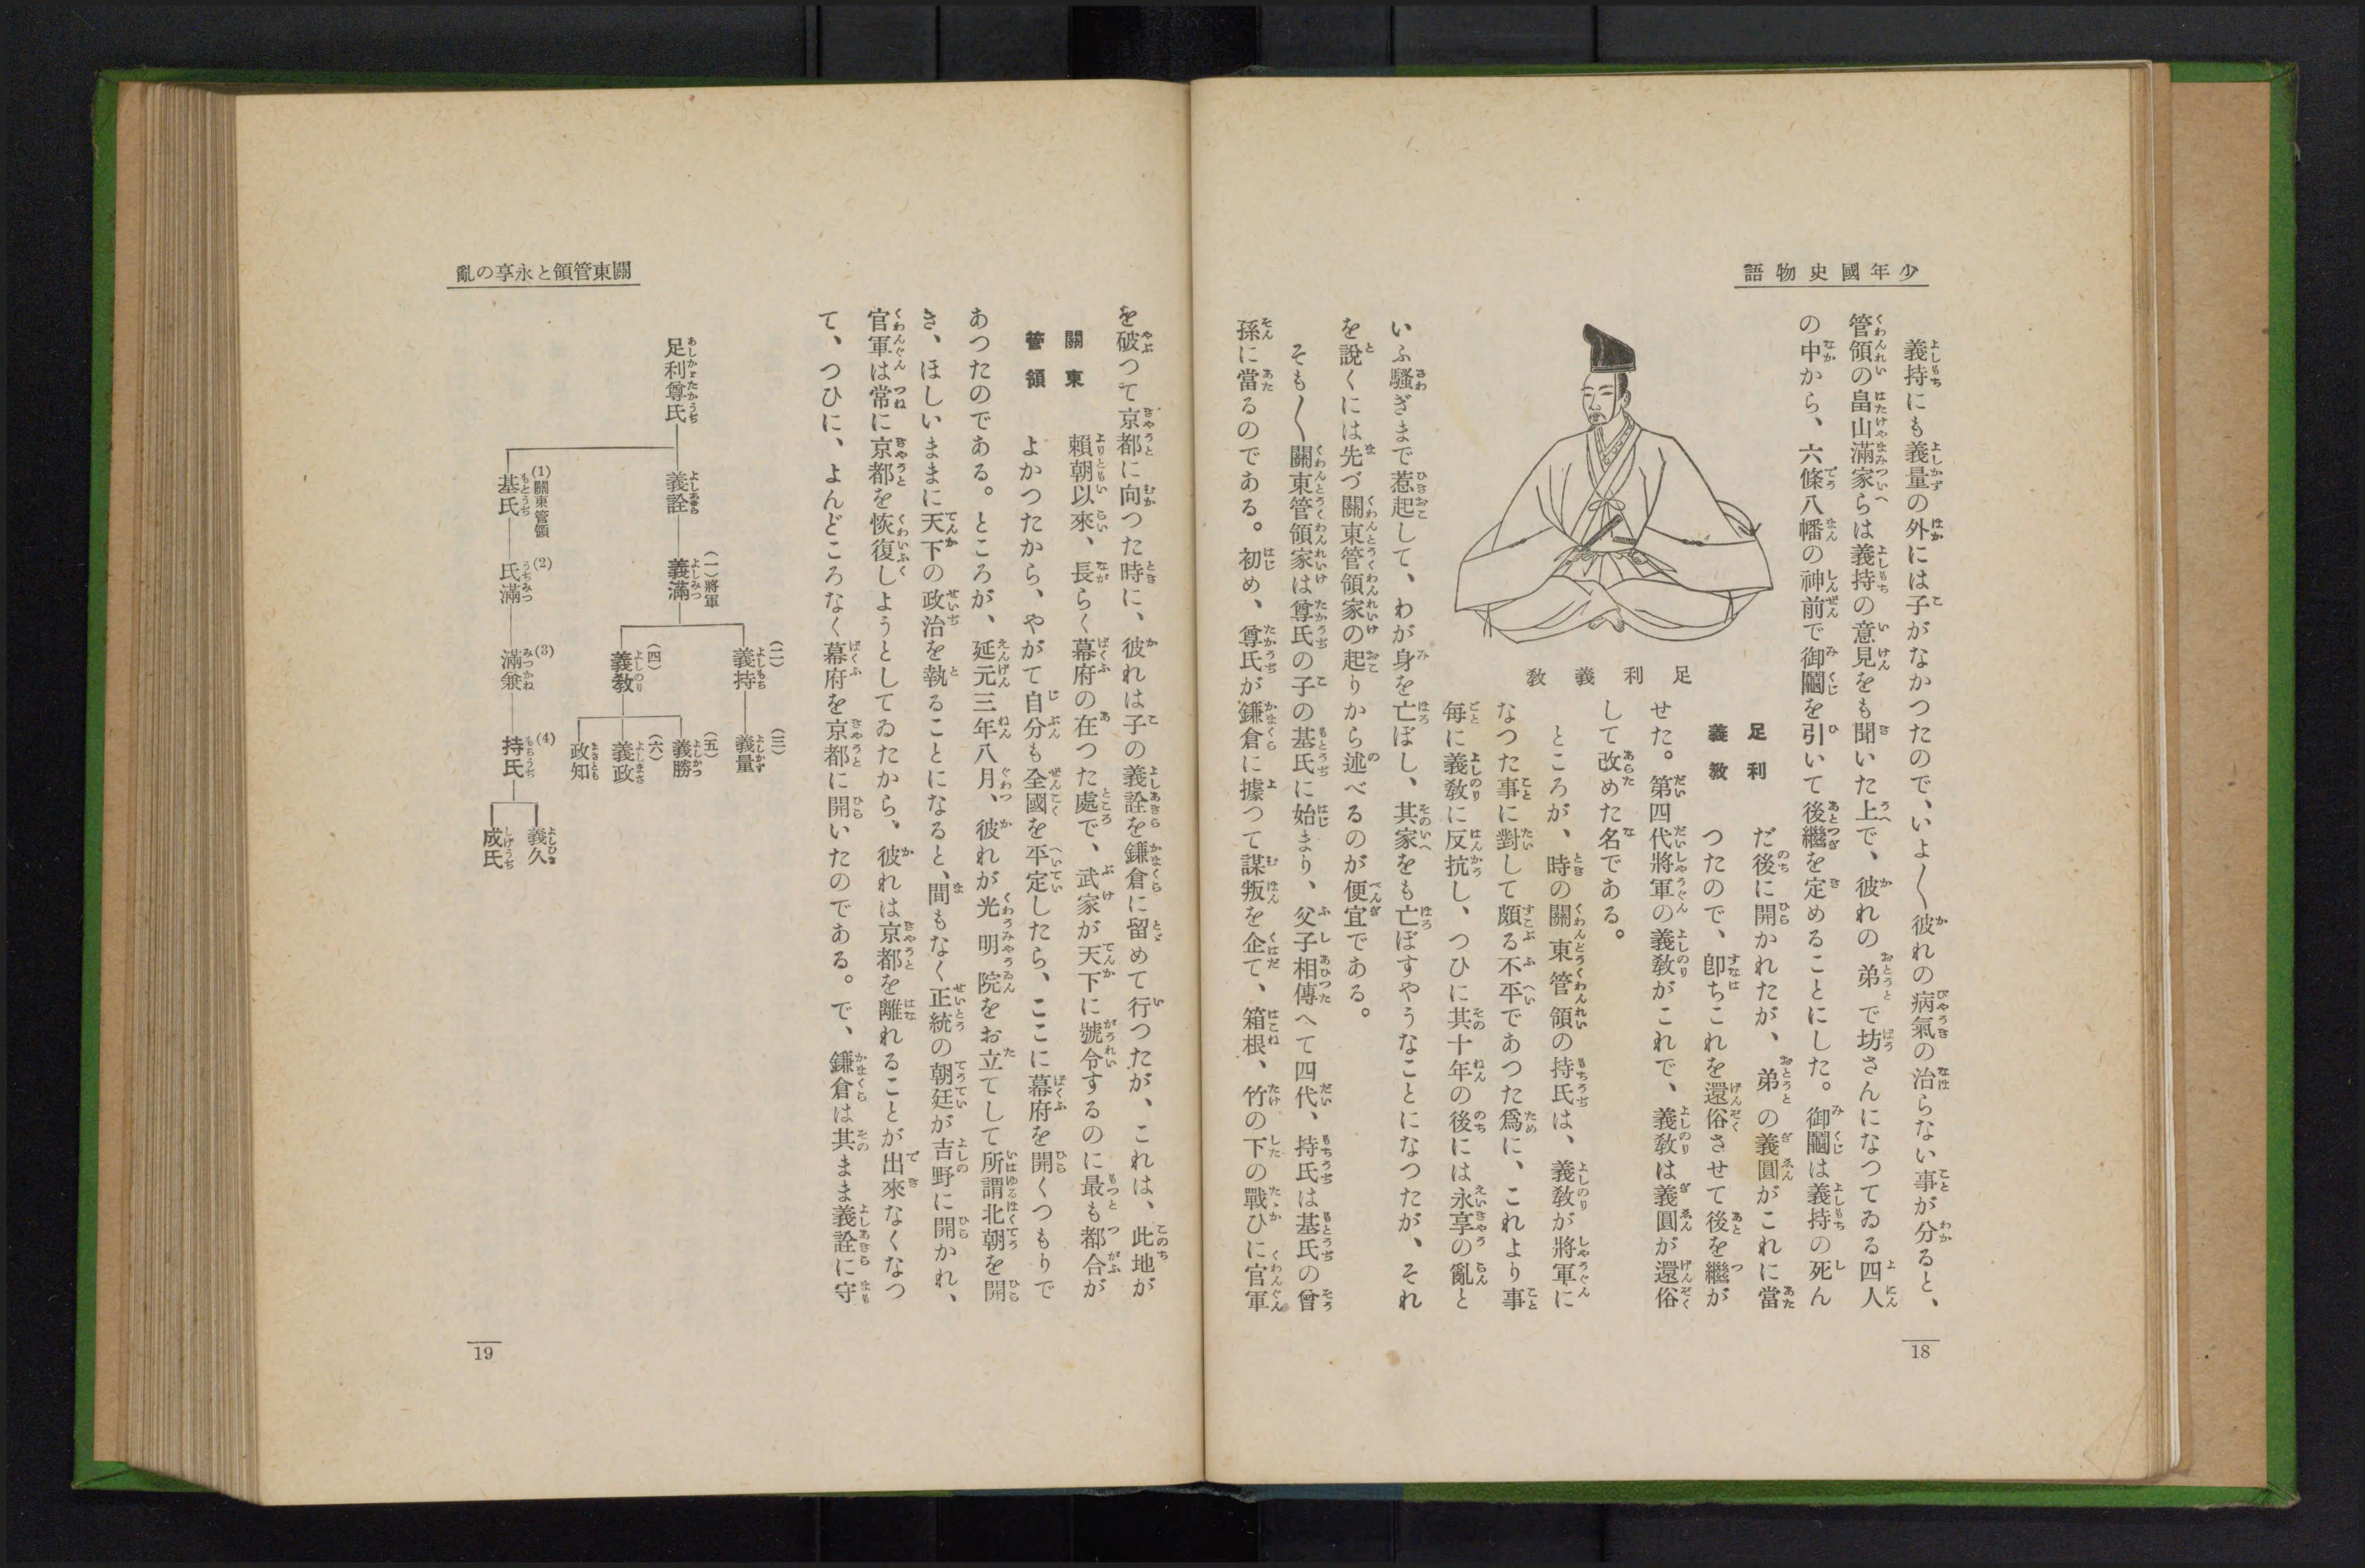 少年國史物語
義持にも義量の外には子がなかつたので、いよ〳〵彼れの病氣の治らない事が分ると、
管領の畠山滿家らは義持の意見をも聞いた上で、彼れの弟で坊さんになつてゐる四人
の中から、六條八幡の神前で御鬮を引いて後繼を定めることにした。御鬮は義持の死ん
足利
義敎
だ後に開かれたが、弟の義圓がこれに當
つたので、卽ちこれを還俗させて後を繼が
せた。第四代將軍の義敎がこれで、義敎は義圓が還俗
して改めた名である。
足利義敎
ところが、時の關東管領の持氏は、義敎が將軍に
なつた事に對して頗る不平であつた爲に、これより事
每に義敎に反抗し、つひに其十年の後には永享の亂と
いふ騷ぎまで惹起して、わが身を亡ぼし、其家をも亡ぼすやうなことになつたが、それ
を說くには先づ關東管領家の起りから述べるのが便宜である。
そも〳〵關東管領家は尊氏の子の基氏に始まり、父子相傳へて四代、持氏は基氏の曾
孫に當るのである。初め、尊氏が鎌倉に據つて謀叛を企て、箱根、竹の下の戰ひに官軍
18
關東管領と永享の亂
を破つて京都に向つた時に、彼れは子の義詮を鎌倉に留めて行つたが、これは、此地が
關東
管領
賴朝以來、長らく幕府の在つた處で、武家が天下に號令するのに最も都合が
よかつたから、やがて自分も全國を平定したら、ここに幕府を開くつもりで
あつたのである。ところが、延元三年八月、彼れが光明院をお立てして所謂北朝を開
き、ほしいままに天下の政治を執ることになると、間もなく正統の朝廷が吉野に開かれ、
官軍は常に京都を恢復しようとしてゐたから、彼れは京都を離れることが出來なくなつ
て、つひに、よんどころなく幕府を京都に開いたのである。で、鎌倉は其まま義詮に守
足利尊氏
義詮
(一)將軍
義滿
(二)
義持
(三)
義量
(四)
義敎
(五)
義勝
(六)
義政
政知
(1)關東管領
基氏
(2)
氏滿
(3)
滿兼
(4)
持氏
義久
成氏
19